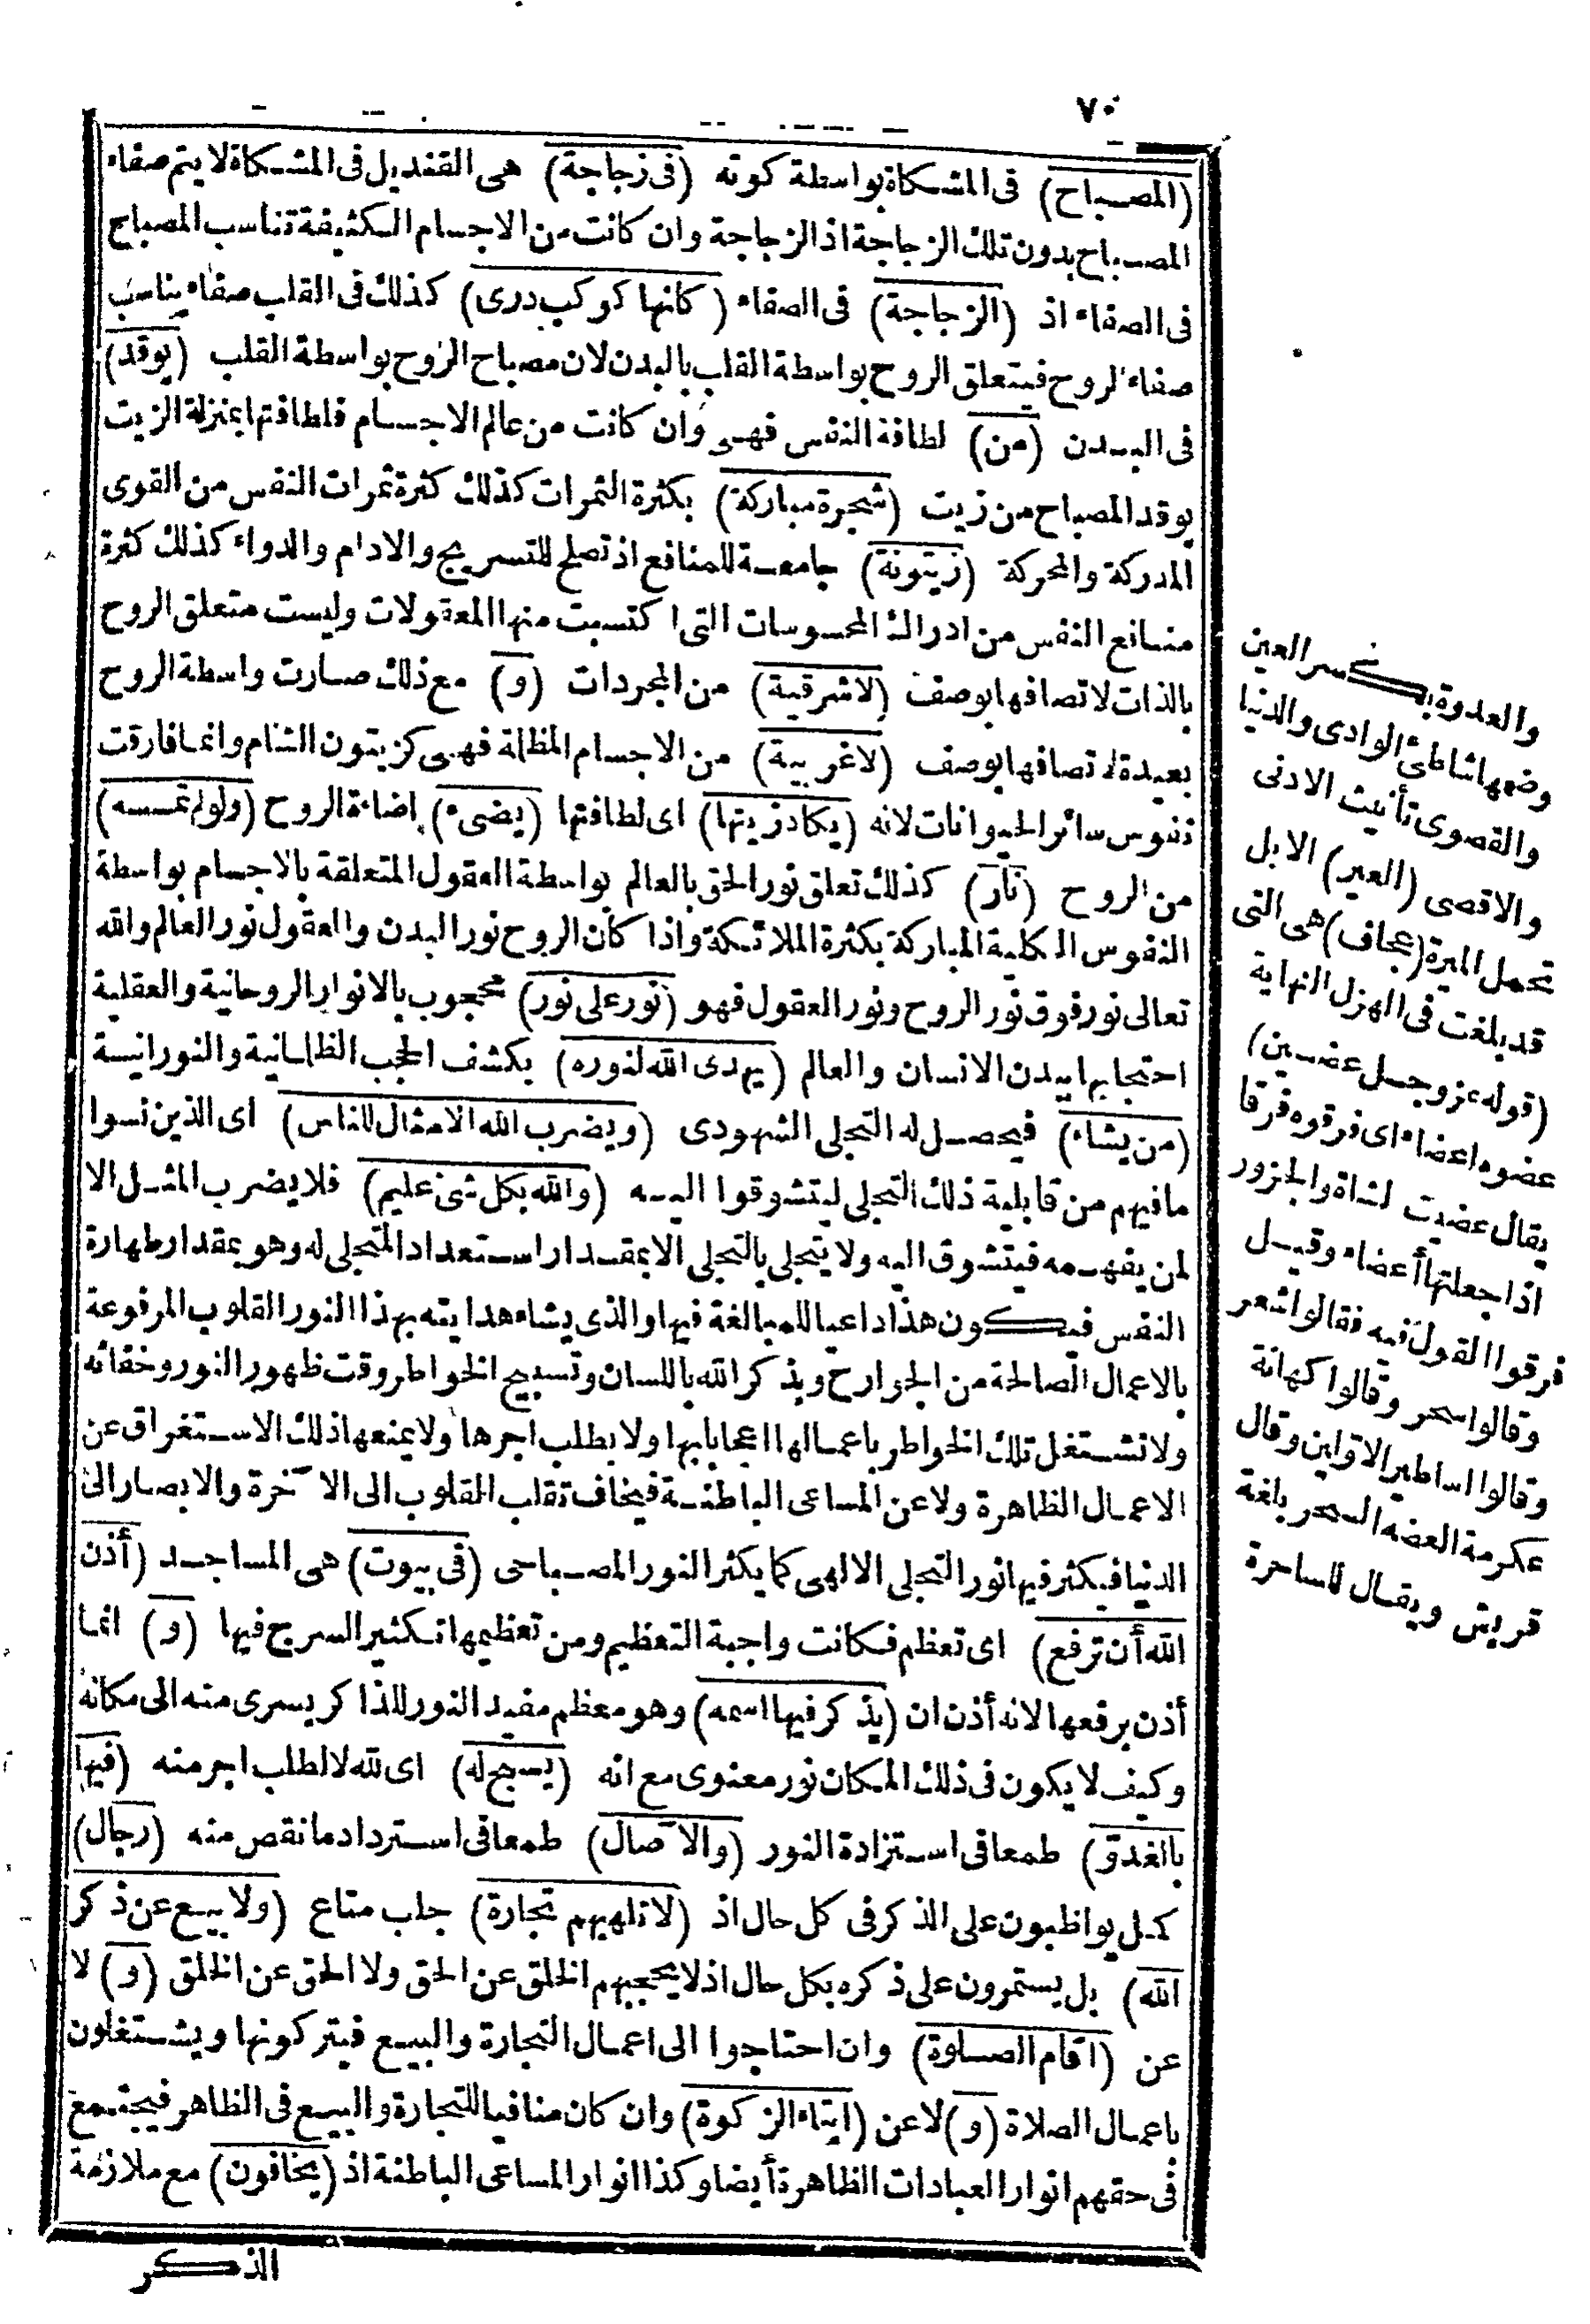 ٧٠
(المصباح) فى المشكاة بواسطة كوته (فى زجاجة) هى القنديل فى المشكاة لا يتم صفاء
المصباح بدون تلك الزجاجة اذ الزجاجة وان كانت من الاجسام الكثيفة تناسب المصباح
فى الصفاء اذ (الزجاجة) فى الصفاء (كانها كوكب درى) كذلك فى القلب صفاء يناسب
صفاء الروح فيتعلق الروح بواسطة القلب بالبدن لان مصباح الروح بواسطة القلب (يوقد)
فى البدن (من) لطافة النفس فهى وان كانت من عالم الاجسام فلطافتها بمنزلة الزيت
يوقد المصباح من زيت (شجرة مباركة) بكثرة الثمرات كذلك كثرة ثمرات النفس من القوى
المدركة والمحركة (زيتونة) جامعة للمنافع اذ تصلح للتسريج والادام والدواء كذلك كثرة
منافع النفس من ادراك المحسوسات التى اكتسبت منها المعقولات وليست متعلق الروح
بالذات لاتصافها بوصف (لا شرقية) من المجردات (و) مع ذلك صارت واسطة الروح
بعيدة لاتصافها بوصف (لا غربية) من الاجسام المظلمة فهى كزيتون الشام وانما فارقت
نفوس سائر الحيوانات لانه (يكاد زيتها) اى لطافتها (يضىء) اضاءة الروح (ولو لم تمسسه)
من الروح (نار) كذلك تعلق نور الحق بالعالم بواسطة العقول المتعلقة بالاجسام بواسطة
النفوس الكلية المباركة بكثرة الملائكة واذا كان الروح نور البدن والعقول نور العالم والله
تعالى نور فوق نور الروح ونور العقول فهو (نور على نور) محجوب بالانوار الروحانية والعقلية
احتجابها ببدن الانسان والعالم (يهدى الله لنوره) بكشف الحجب الظلمانية والنورانية
(من يشاء) فيحصل له التجلى الشهودى (ويضرب الله الامثال للناس) اى الذين نسوا
ما فيهم من قابلية ذلك التجلى ليتشوقوا اليه (والله بكل شئ عليم) فلا يضرب المثل الا
لمن يفهمه فيتشوق اليه ولا يتجلى بالتجلى الا بمقدار استعداد المتجلى له وهو بمقدار طهارة
النفس فيكون هذا داعيا للمبالغة فيها والذى يشاء هدايته بهذا النور القلوب المرفوعة
بالاعمال الصالحة من الجوارح وبذكر الله باللسان وتسبيح الخواطر وقت ظهور النور وخفائه
ولا تشتغل تلك الخواطر باعمالها اعجابا بها ولا بطلب اجرها ولا يمنعها ذلك الاستغراق عن
الاعمال الظاهرة ولا عن المساعى الباطنة فيخاف تقلب القلوب الى الآخرة والابصار الى
الدنيا فيكثر فيها نور التجلى الالهى كما يكثر النور المصباحى (فى بيوت) هى المساجد (أذن
الله أن ترفع) اى تعظم فكانت واجبة التعظيم ومن تعظيمها تكثير السرج فيها (و) انما
أذن برفعها لانه أذن ان (يذكر فيها اسمه) وهو معظم مفيد النور للذاكر يسرى منه الى مكانه
وكيف لا يكون فى ذلك المكان نور معنوى مع انه (يسبح له) اى لله لا لطلب اجر منه (فيها
بالغدو) طمعا فى استزادة النور (والآصال) طمعا فى استرداد ما نقص منه (رجال)
كمل يواظبون على الذكر فى كل حال اذ (لا تلهيهم تجارة) جلب متاع (ولا بيع عن ذكر
الله) بل يستمرون على ذكره بكل حال اذ لا يحجبهم الخلق عن الحق ولا الحق عن الخلق (و) لا
عن (اقام الصلوة) وان احتاجوا الى اعمال التجارة والبيع فيتركونها ويشتغلون
باعمال الصلاة (و) لا عن (ايتاء الزكوة) وان كان منافيا للتجارة والبيع فى الظاهر فيجتمع
فى حقهم انوار العبادات الظاهرة أيضا وكذا انوار المساعى الباطنة اذ (يخافون) مع ملازمة
الذكر
والعدوة بكسر العين
وضمها شاطئ الوادى والدنيا
والقصوى تأنيث الادنى
والاقصى (العير) الابل
تحمل الميرة (عجاف) هى التى
قد بلغت فى الهزل النهاية
(قوله عز وجل عضين)
عضوه اعضاء اى فرقوه فرقا
يقال عضيت الشاة والجزور
اذا جعلتها أعضاء وقيل
فرقوا القول فيه فقالوا شعر
وقالوا سحر وقالوا كهانة
وقالوا اساطير الاولين وقال
عكرمة العضه السحر بلغة
قريش ويقال للساحرة